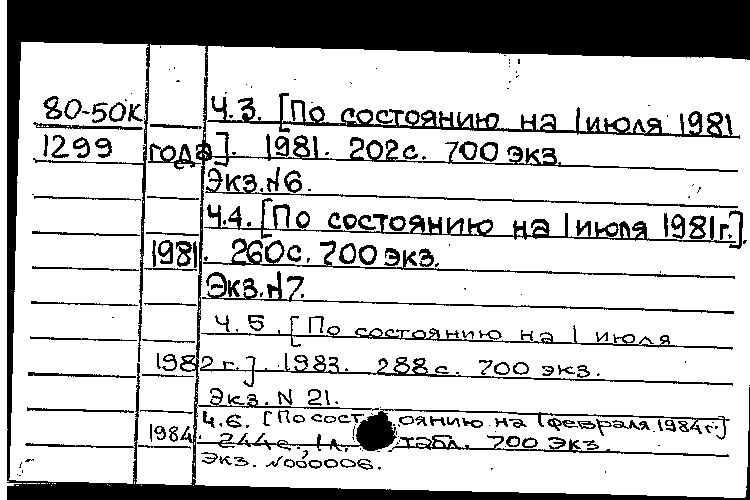 80-50К Ч.3. [По состоянию на 1 июля 1981
1299 года]. 1981. 202с. 700 экз.
Экз.№6.
Ч.4. [По состоянию на 1 июля 1981г.].
1981. 260с. 700 экз.
Экз.№7.
Ч.5. [По состоянию на 1 июля
1982г.]. 1983. 288с. 700 экз.
Экз. N 21.
Ч.6. [По состоянию на 1 февраля 1984г.]
1984. 244с., 1л. табл. 700 экз.
Экз. №000006.